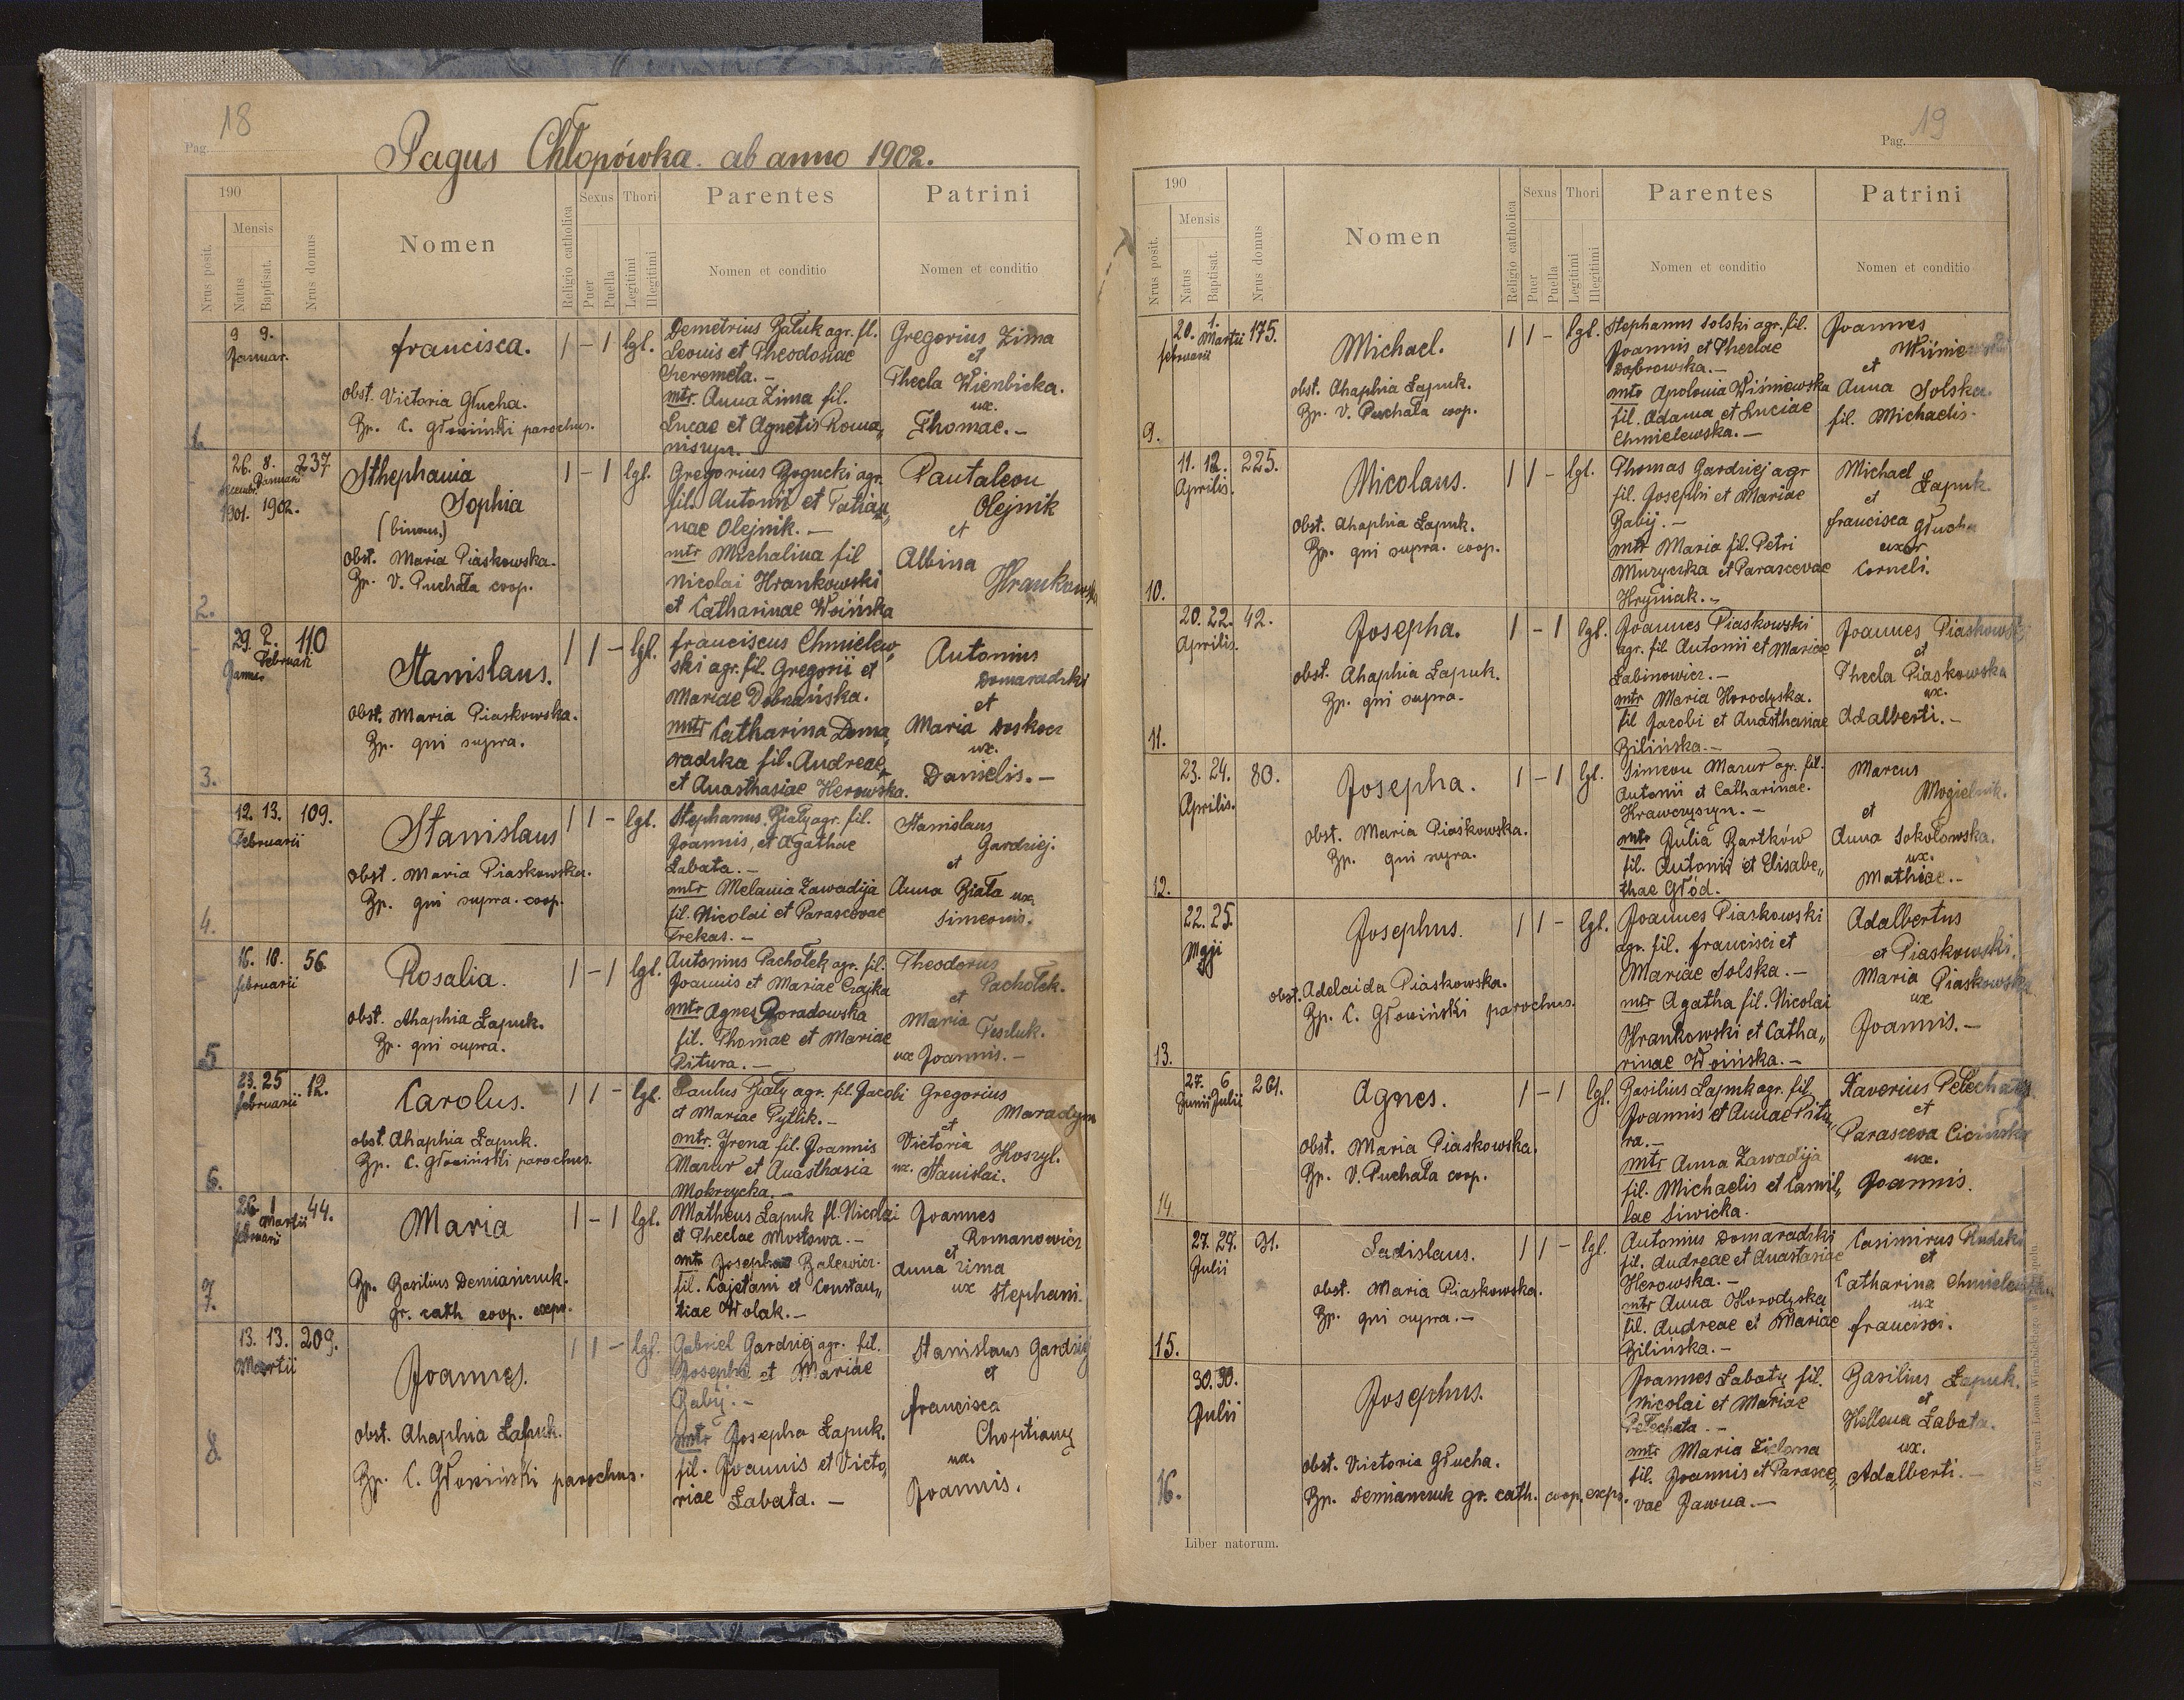 18
Pag.
Pagus Chłopówka. ab anno 1902.
190
Nrus posit.
Mensis
Natus
Baptisat.
Nrus domus
Nomen
Religio catholica
Sexus
Puer
Puella
Thori
Legitimi
Illegitimi
Parentes
Nomen et conditio
Patrini
Nomen et conditio
1.
9 9.
Januar.
francisca.
obst. Victoria Głucha.
Bp. C. Głowiński parochus.
1 - 1 lgl.
Demetrius Bałuk agr. fl.
Leonis et Theodosiae
Cheremeta. -
mtr. Anna Zima fil.
Lucae et Agnetis Roma„
niszyn. -
Gregorius Zima
et
Thecla Wienbicka.
ux.
Thomae. -
2.
26. 8. 237
Decembr. Januarii
1901. 1902.
Sthephania
Sophia
(binom.)
obst. Maria Piaskowska.
Bp. V. Puchała coop.
1 - 1 lgl.
Gregorius Bogucki agr.
fil. Antonii et Tatian„
nae Olejnik. -
mtr Michalina fil
Nicolai Hrankowski
et Catharinae Woińska
Pantaleon
Olejnik
et
Albina
Hrankowska
3.
29. 2. 110
Januar Februarii
Stanislaus.
obst. Maria Piaskowska.
Bp. qui supra.
1 1 - lgl.
franciscus Chmielew„
ski agr. fil. Gregorii et
Mariae Dobrańska.
mtr Catharina Doma„
radzka fil. Andreae
et Anasthasiae Herowska.
Antonius
Domaradzki
et
Maria Doskocz
ux.
Danielis. -
4.
12. 13. 109.
Februarii
Stanislaus
obst. Maria Piaskowska.
Bp. qui supra. coop.
1 1 - lgl.
Stephanus Biały agr. fil.
Joannis, et Agathae
Łabata. -
mtr Melania Zawadija
fil. Nicolai et Parascevae
Trekas. -
Stanislaus
Gardziej.
et
Anna Biała ux.
Simeonis.
5
16. 18. 56.
februarii
Rosalia.
obst. Ahaphia Łapuk.
Bp. qui supra.
1 - 1 lgl.
Antonius Pachołek agr. fil.
Joannis et Mariae Czajka
mtr Agnes Boradowska
fil. Thomae et Mariae
Pitura. -
Theodorus
Pachołek.
et
Maria Teszluk.
ux Joannis. -
6.
23. 25 12.
februarii
Carolus.
obst. Ahaphia Łapuk.
Bp. C. Głowiński parochus.
1 1 - lgl.
Paulus Biały agr. fil. Jacobi
et Mariae Pytlik. -
mtr. Irena fil. Joannis
Mazur et Anasthasia
Mokrzycka. -
Gregorius
Maradyn
et
Victoria Koszyl.
ux. Stanislai.
7.
26 1 44.
februarii Martii
Maria
Bp. Basilius Demianczuk.
gr. cath coop. expo.
1 - 1 lgl.
Matheus Łapuk fl. Nicolai
et Theclae Mostowa. -
mtr Josepha Balewicz.
fil. Cajetani et Constan„
tiae Wolak. -
Joannes
Romanowicz
et
Anna Zima
ux Stephani.
8.
13. 13. 209.
Martii
Joannes.
obst. Ahaphia Łapuk.
Bp. C. Głowiński parochus.
1 1 - lgl.
Gabriel Gardziej agr. fil.
Josephi et Mariae
Babij. -
mtr Josepha Łapuk.
fil. Joannis et Victo„
riae Łabata. -
Stanislaus Gardziej
et
francisca
Choptiany
ux.
Joannis.
19
Pag.
190
Nrus posit.
Mensis
Natus
Baptisat.
Nrus domus
Nomen
Religio catholica
Sexus
Puer
Puella
Thori
Legitimi
Illegitimi
Parentes
Nomen et conditio
Patrini
Nomen et conditio
9.
20. 1. 175.
februarii Martii
Michael.
obst. Ahaphia Łapuk.
Bp. V. Puchała coop.
1 1 - lgl.
Stephanus Solski agr. fil.
Joannis et Theclae
Dąbrowska. -
mtr Apolonia Wiśniewska
fil. Adama et Luciae
Chmielewska. -
Joannes
et
Anna Solska.
fil. Michaelis.
10.
11. 12. 225.
Aprilis.
Nicolaus.
obst. Ahaphia Łapuk.
Bp. qui supra. coop.
1 1 - lgl.
Thomas Gardziej agr
fil. Josephi et Mariae
Babij. -
mtr Maria fil. Petri
Muzyczka et Parascevae
Hryniak. -
Michael
Łapuk.
et
francisca Głucha
uxor
Corneli.
11.
20. 22. 42.
Aprilis.
Josepha.
obst. Ahaphia Łapuk.
Bp. qui supra.
1 - 1 lgl.
Joannes Piaskowski
agr. fil Antonii et Mariae
Łabinowicz. -
mtr Maria Horodyska.
fil Jacobi et Anasthasiae
Bilińska. -
Joannes Piaskowski
et
Thecla Piaskowska
ux.
Adalberti. -
12.
23. 24. 80.
Aprilis.
Josepha.
obst. Maria Piaskowska.
Bp. qui supra.
1 - 1 lgl.
Simeon Mazur agr. fil.
Antonii et Catharinae.
Krawczyszyn. -
mtr Julia Bartków
fil. Antonii et Elisabe„
thae Głód.
Marcus
Mogielnik.
et
Anna Sokołowska.
ux.
Mathiae. -
13.
22. 25.
Maji
Josephus.
obst. Adelaida Piaskowska.
Bp. C. Głowiński parochus.
1 1 - lgl.
Joannes Piaskowski
agr. fil. francisci et
Mariae Solska. -
mtr Agatha fil. Nicolai
Hrankowski et Catha„
rinae Woińska. -
Adalbertus
et Piaskowski.
Maria Piaskowska
ux
Joannis. -
14.
27. 6 261.
Junii Julii
Agnes.
obst. Maria Piaskowska.
Bp. V. Puchała coop.
1 - 1 lgl.
Basilius Łapuk agr. fil
Joannis et Annae Pitu„
ra. -
mtr Anna Zawadija
fil. Michaelis et Camil„
lae Siwicka.
Xaverius Pełechaty
et
Parasceva Cicińska
ux.
Joannis.
15.
27. 27. 31.
Julii
Ladislaus.
obst. Maria Piaskowska.
Bp. qui supra. -
1 1 - lgl.
Antonius Domaradzki
fil. Andreae et Anastasiae
Herowska. -
mtr Anna Horodyska
fil. Andreae et Mariae
Bilińska. -
Casimirus Rudzki
et
Catharina Chmielewska
ux
francisci.
16.
30. 30.
Julii
Josephus.
obst. Victoria Głucha.
Bp. Demianczuk gr. cath. coop. expo.
Joannes Łabaty fil.
Nicolai et Mariae
Pełechata. -
mtr Maria Zielona
fil. Joannis et Parasce„
vae Jawna. -
Basilius Łapuk.
et
Hellena Łabata.
ux.
Adalberti. -
Liber natorum.